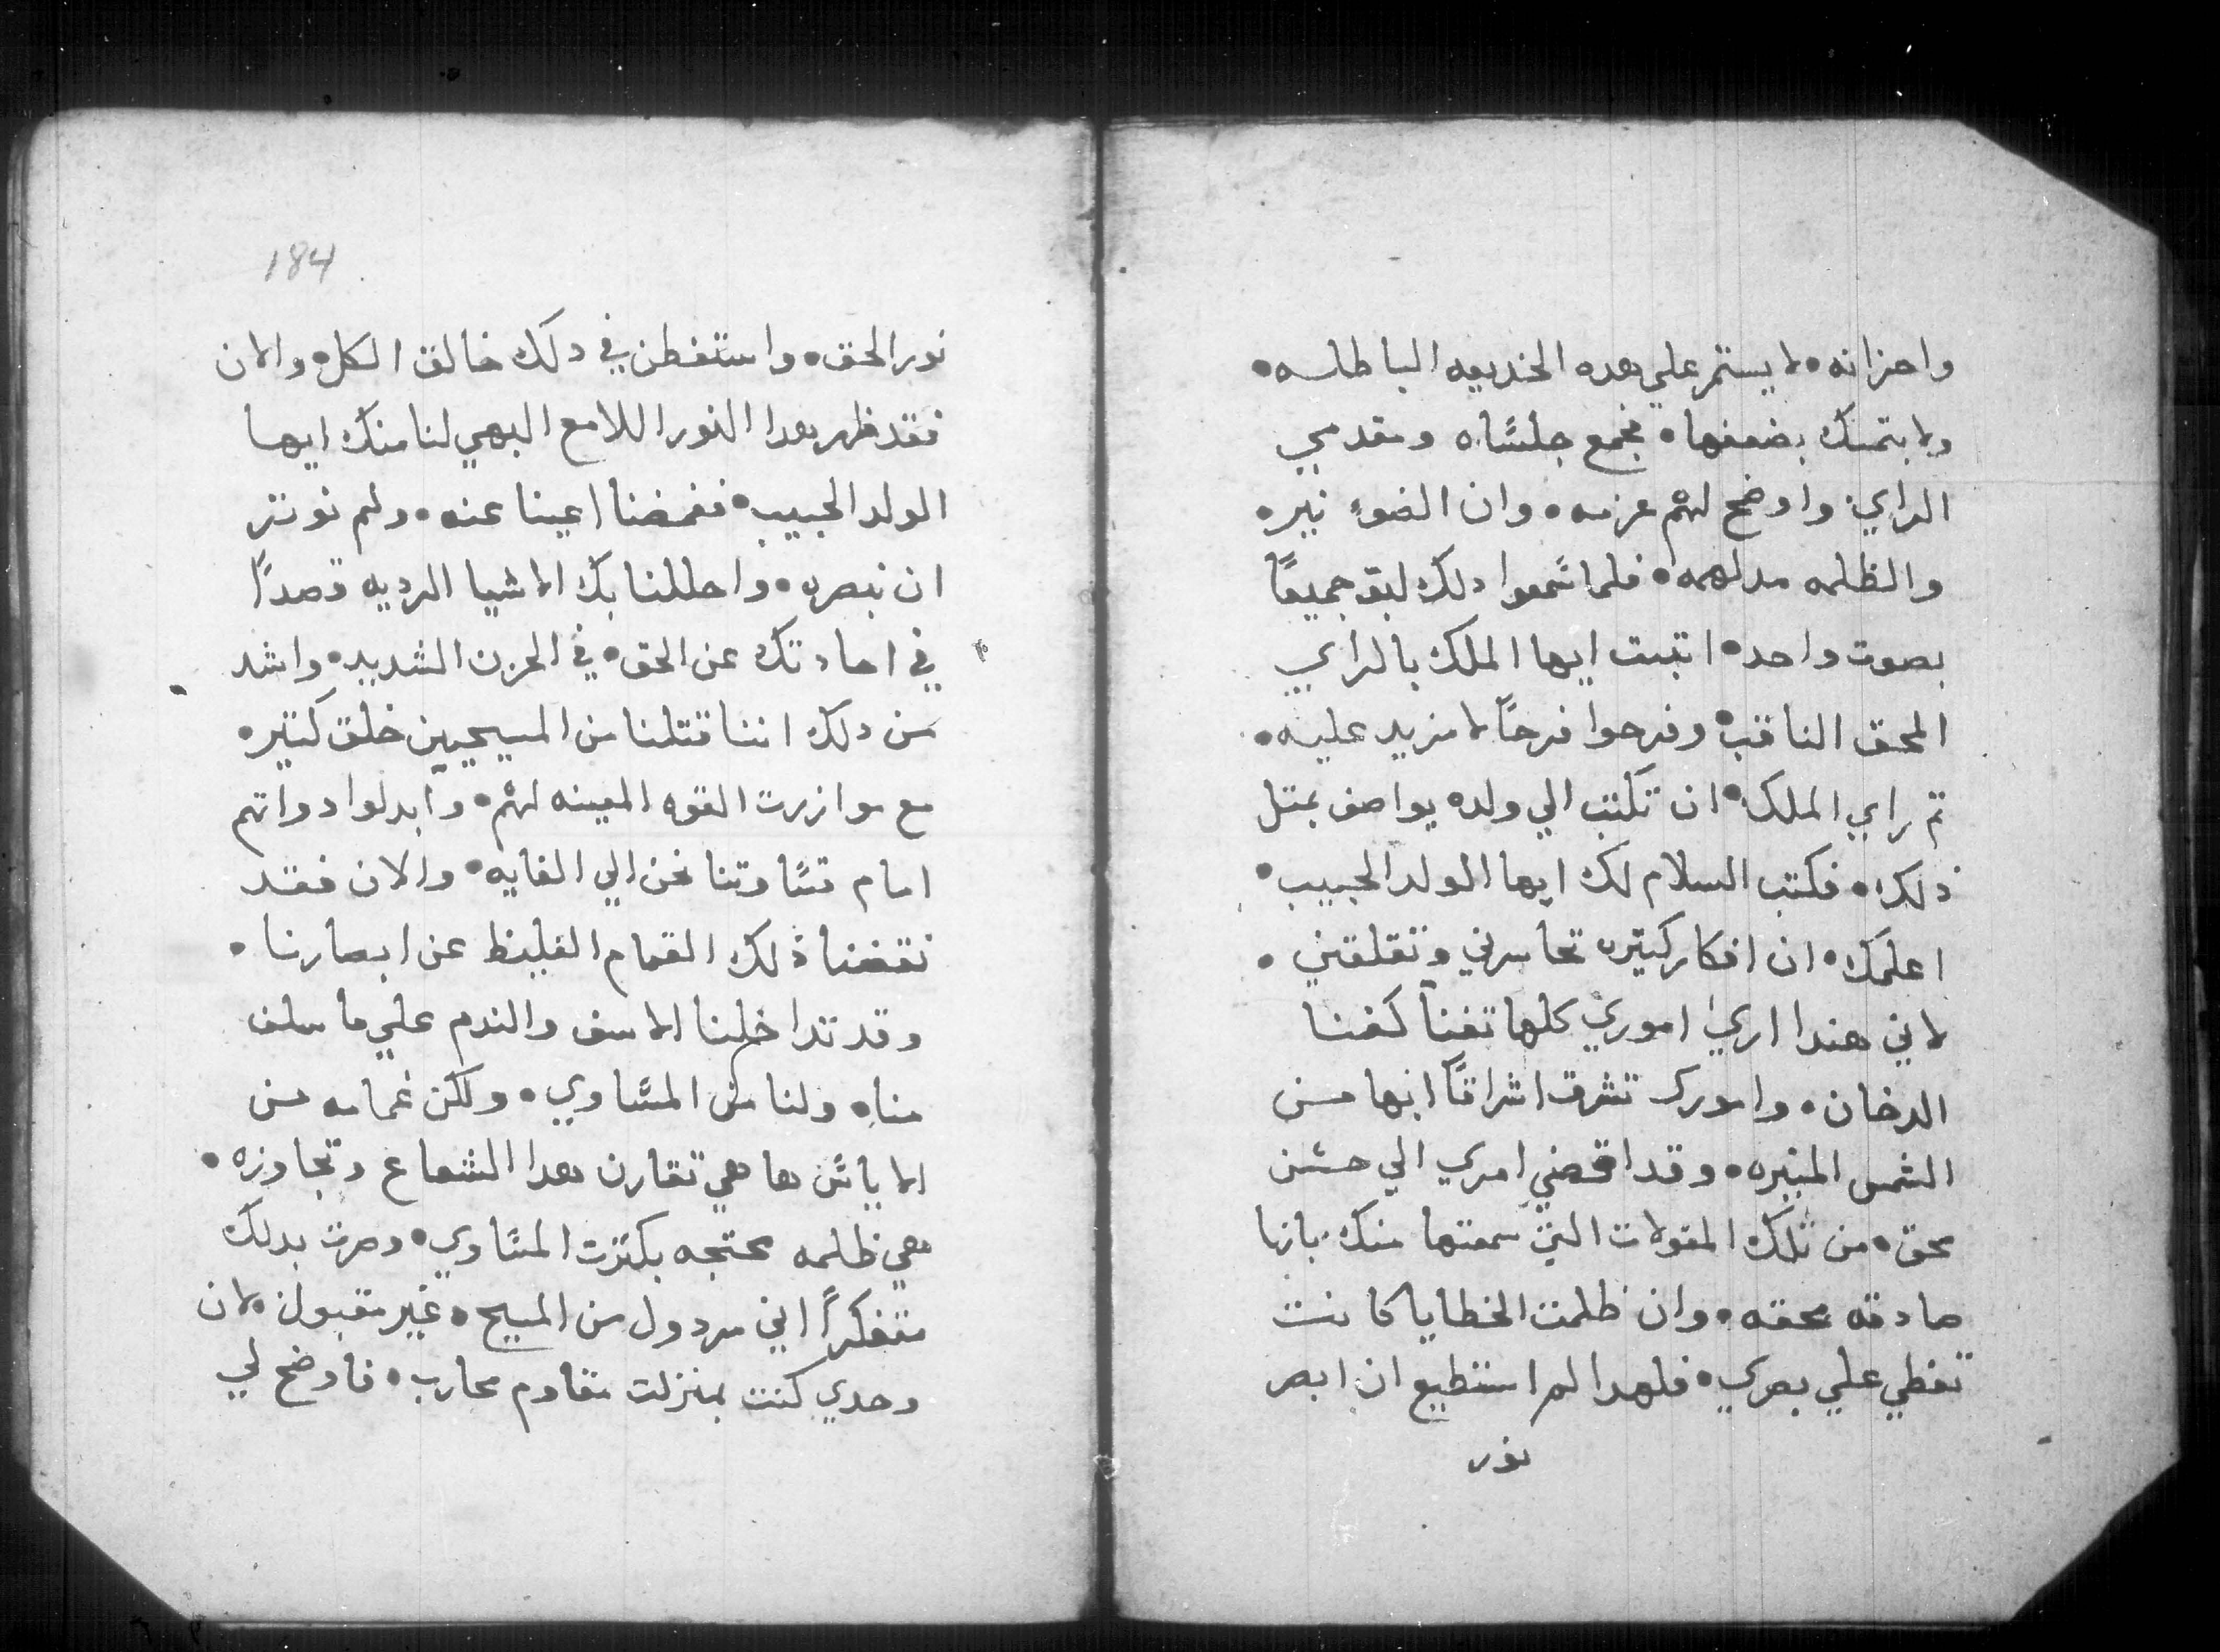 واحزانه • لا يستمر علي هده الخديعه الباطله •
ولا يتمسك بضعفها • فجمع جلساه ومقدمي
الراي • واوضح لهم عزمه • وان الضوء نيره
والظلمه مدلهمه • فلما سمعوا دلك لبق جميعًا
بصوت واحد • اتبت ايها الملك بالراي
المحق الثاقب • وفرحوا فرحًا لا مزيد عليه •
تم راي الملك • ان تكتب الي ولده يواصف بمتل
ذلك • فكتب السلام لك ايها الولد الحبيب •
اعلمك • ان افكار كتيره تحاسرني وتقلقني •
لاني هندا اري اموري كلها تفنا كفنا
الدخان • وامورك تشرق اشراقًا ابها من
الشمس المنيره • وقد اقضي امري الي حسن
محق • من تلك المقولات التي سمعتها منك بانها
صادقه محقه • وان ظلمت الخطايا كانت
تغطي علي بصري • فلهدا لم استطيع ان ابصر
نور
184
نور الحق • واستفطن في دلك خالق الكل • والان
فقد ظهر هدا النور اللامع البهي لنا منك ايها
الولد الحبيب • فغمضنا اعينا عنه • ولم نوتر
ان نبصره • واحللنا بك الاشيا الرديه قصدًا
في احادتك عن الحق • في الحزن الشديد • واشد
من دلك اننا قتلنا من المسيحيين خلق كتيره
مع موازرت القوه المعينه لهم • وابدلوا دواتهم
امام قساوتنا نحن الي الغايه • والان فقد
نقضنا ذلك الغمام الغليظ عن ابصارنا •
وقد تداخلنا الاسف والندم علي ما سلف
مناه ولنا من المساوي • ولكن غمامه من
الاياس ها هي تقارن هدا الشعاع وتجاوزه •
هي ظلمه محتجه بكترت المساوي • وصرت بدلك
متفكرًا اني مردول من المسيح • غير مقبول • لان
وحدي كنت بمنزلت مقاوم محارب • فاوضح لي